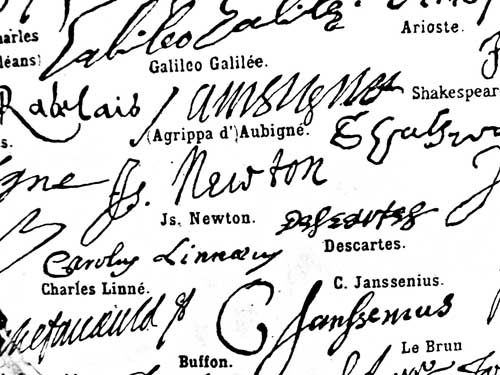 harles
léans)
Galileo Galilei
Galileo Galilée.
Arioste.
Rabelais
Shakespear
s.
(Agrippa d')Aubigné.
Js. Newton
Js. Newton.
Descartes
Descartes.
Carolus Linnæus
Charles Linné.
C. Janssenius.
C Janssenius
Buffon.
Le Brun